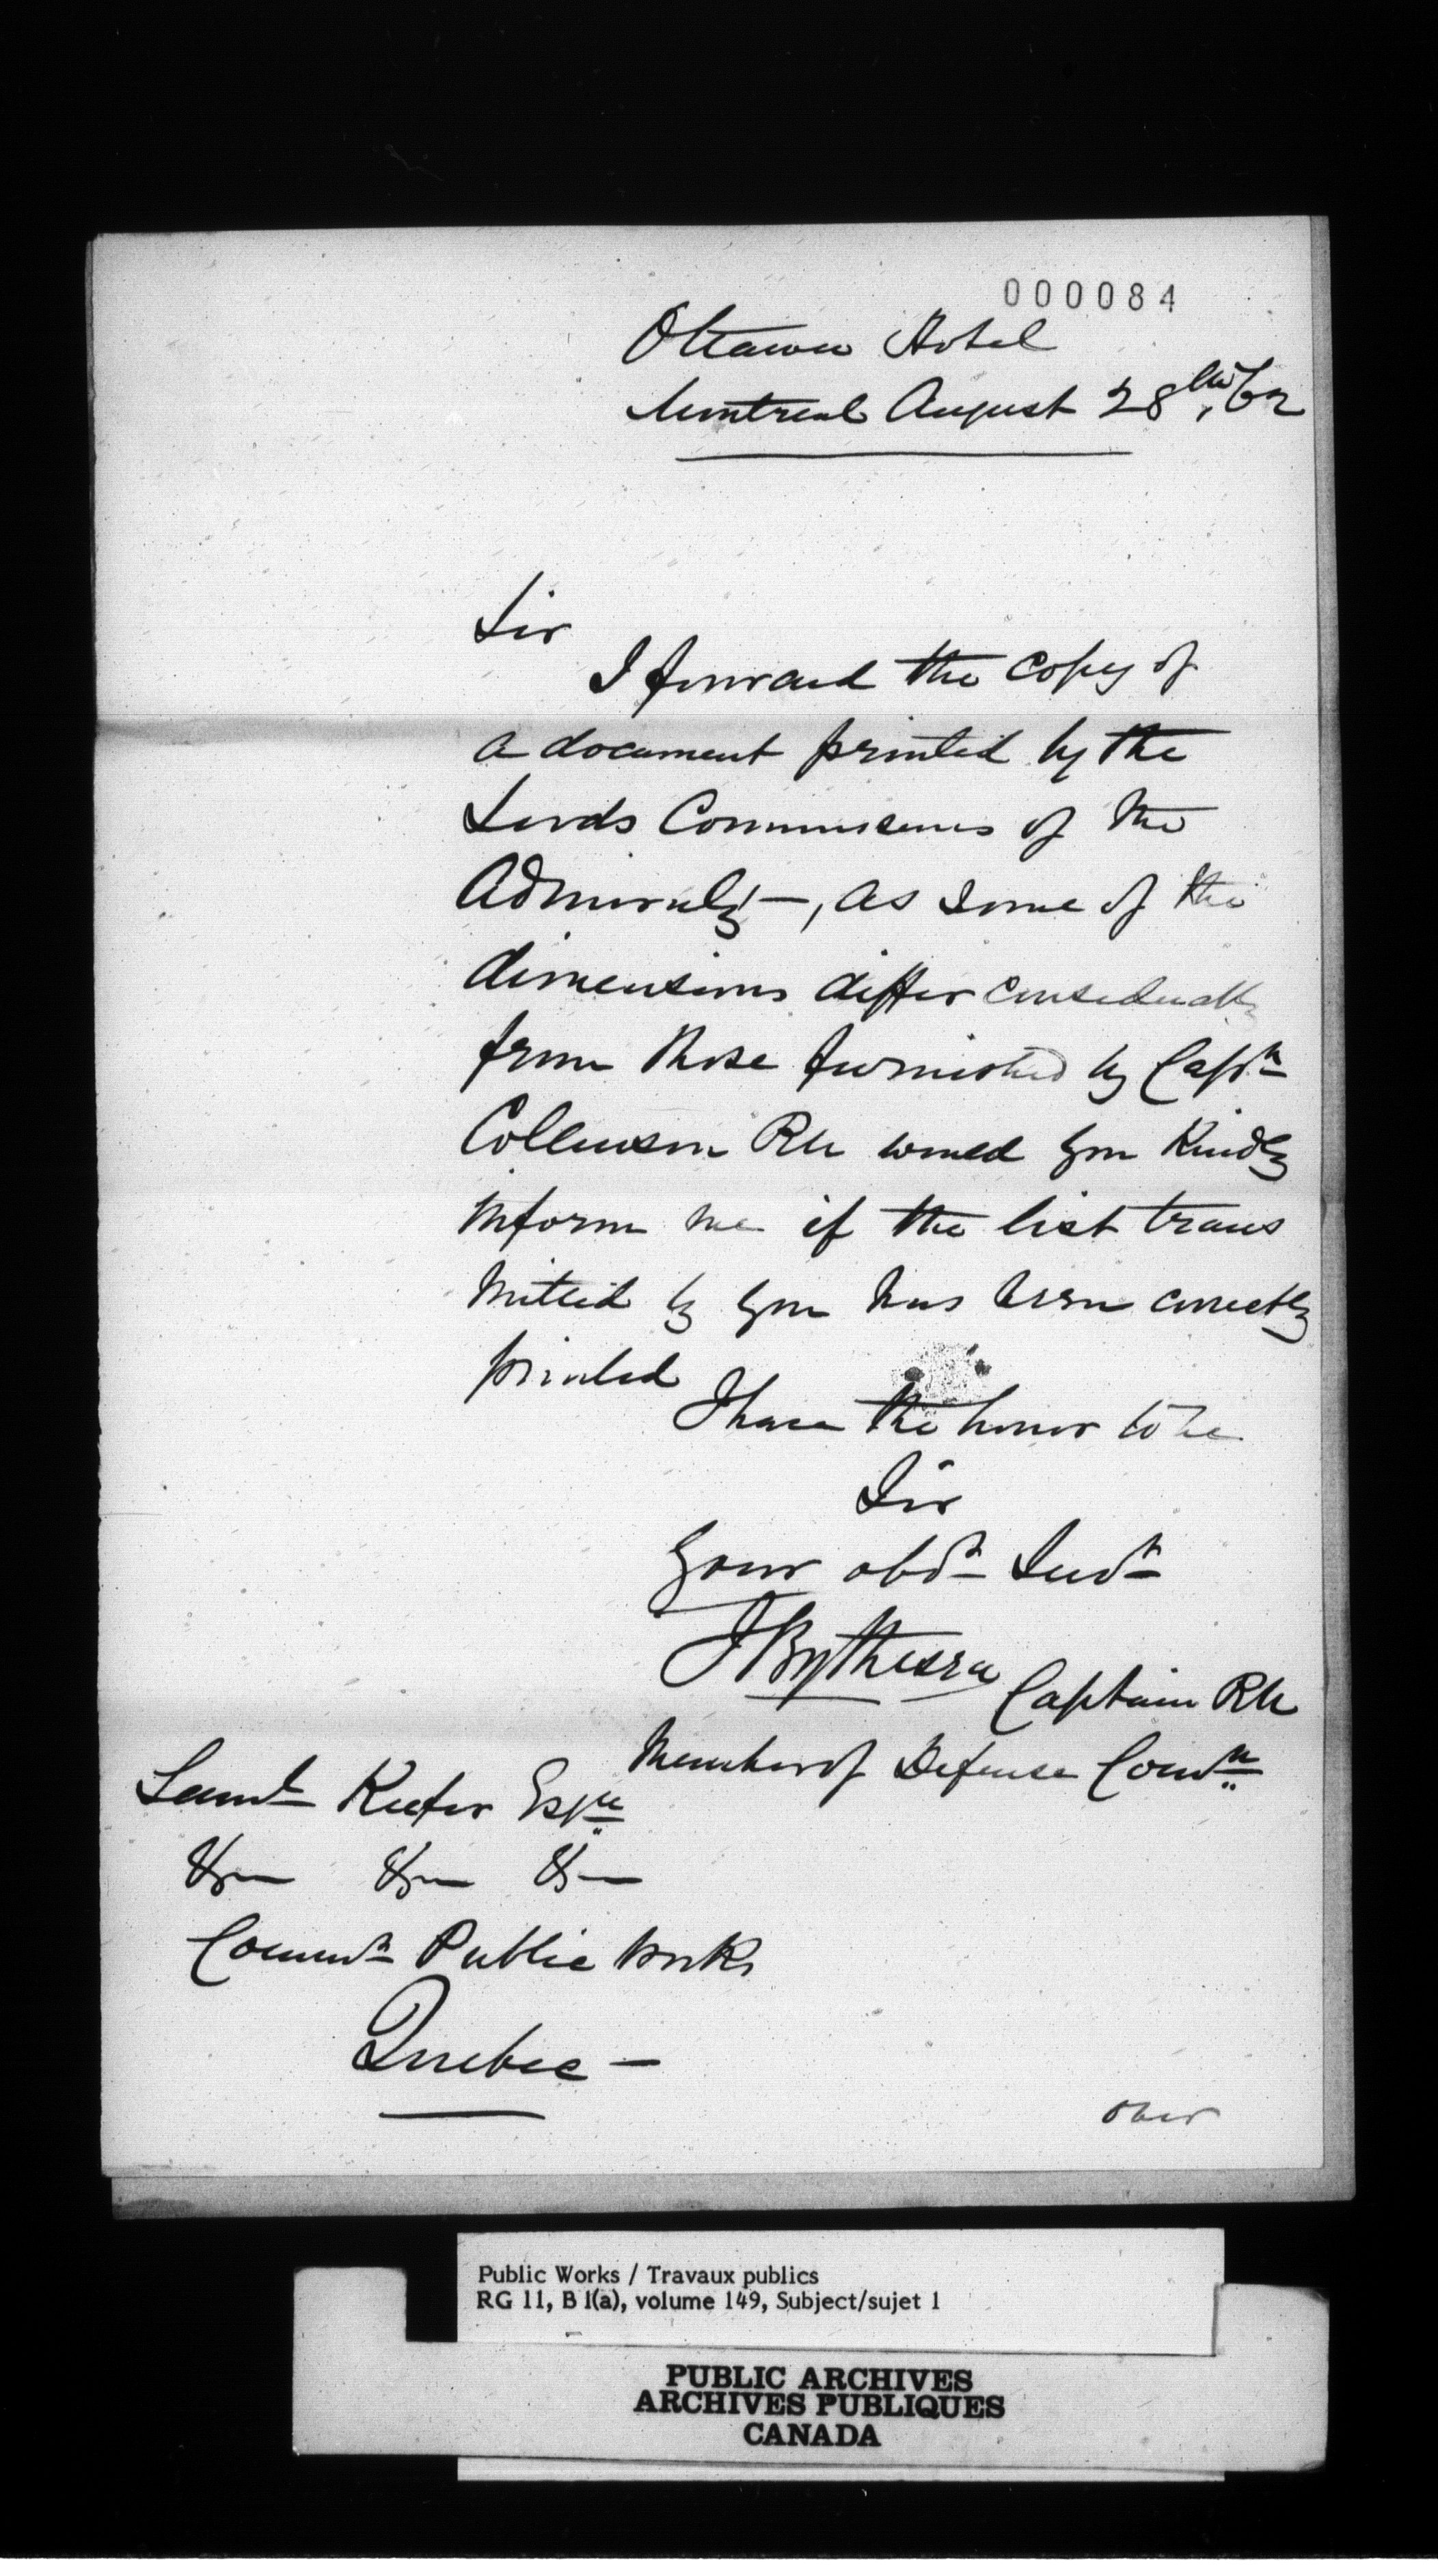 000084
Ottawa Hotel
Montreal August 28th, 62
Sir
I forward the copy of
a document printed by the
Lords Commissioners of the
Admiralty—, as some of the
dimensions differ considerably
from those furnished by Captn
Collinson RN would you Kindly
inform me if the list trans
mitted by you has been correctly
printed
I have the honor to be
Sir
Your obdt Servt
J Bythesea Captain RN
Member of Defense Comn
Saml Keefer Esqre
&c &c &c
Commr Public Works
Quebec—
over
Public Works / Travaux publics
RG 11, B 1(a), volume 149, Subject/sujet 1
PUBLIC ARCHIVES
ARCHIVES PUBLIQUES
CANADA